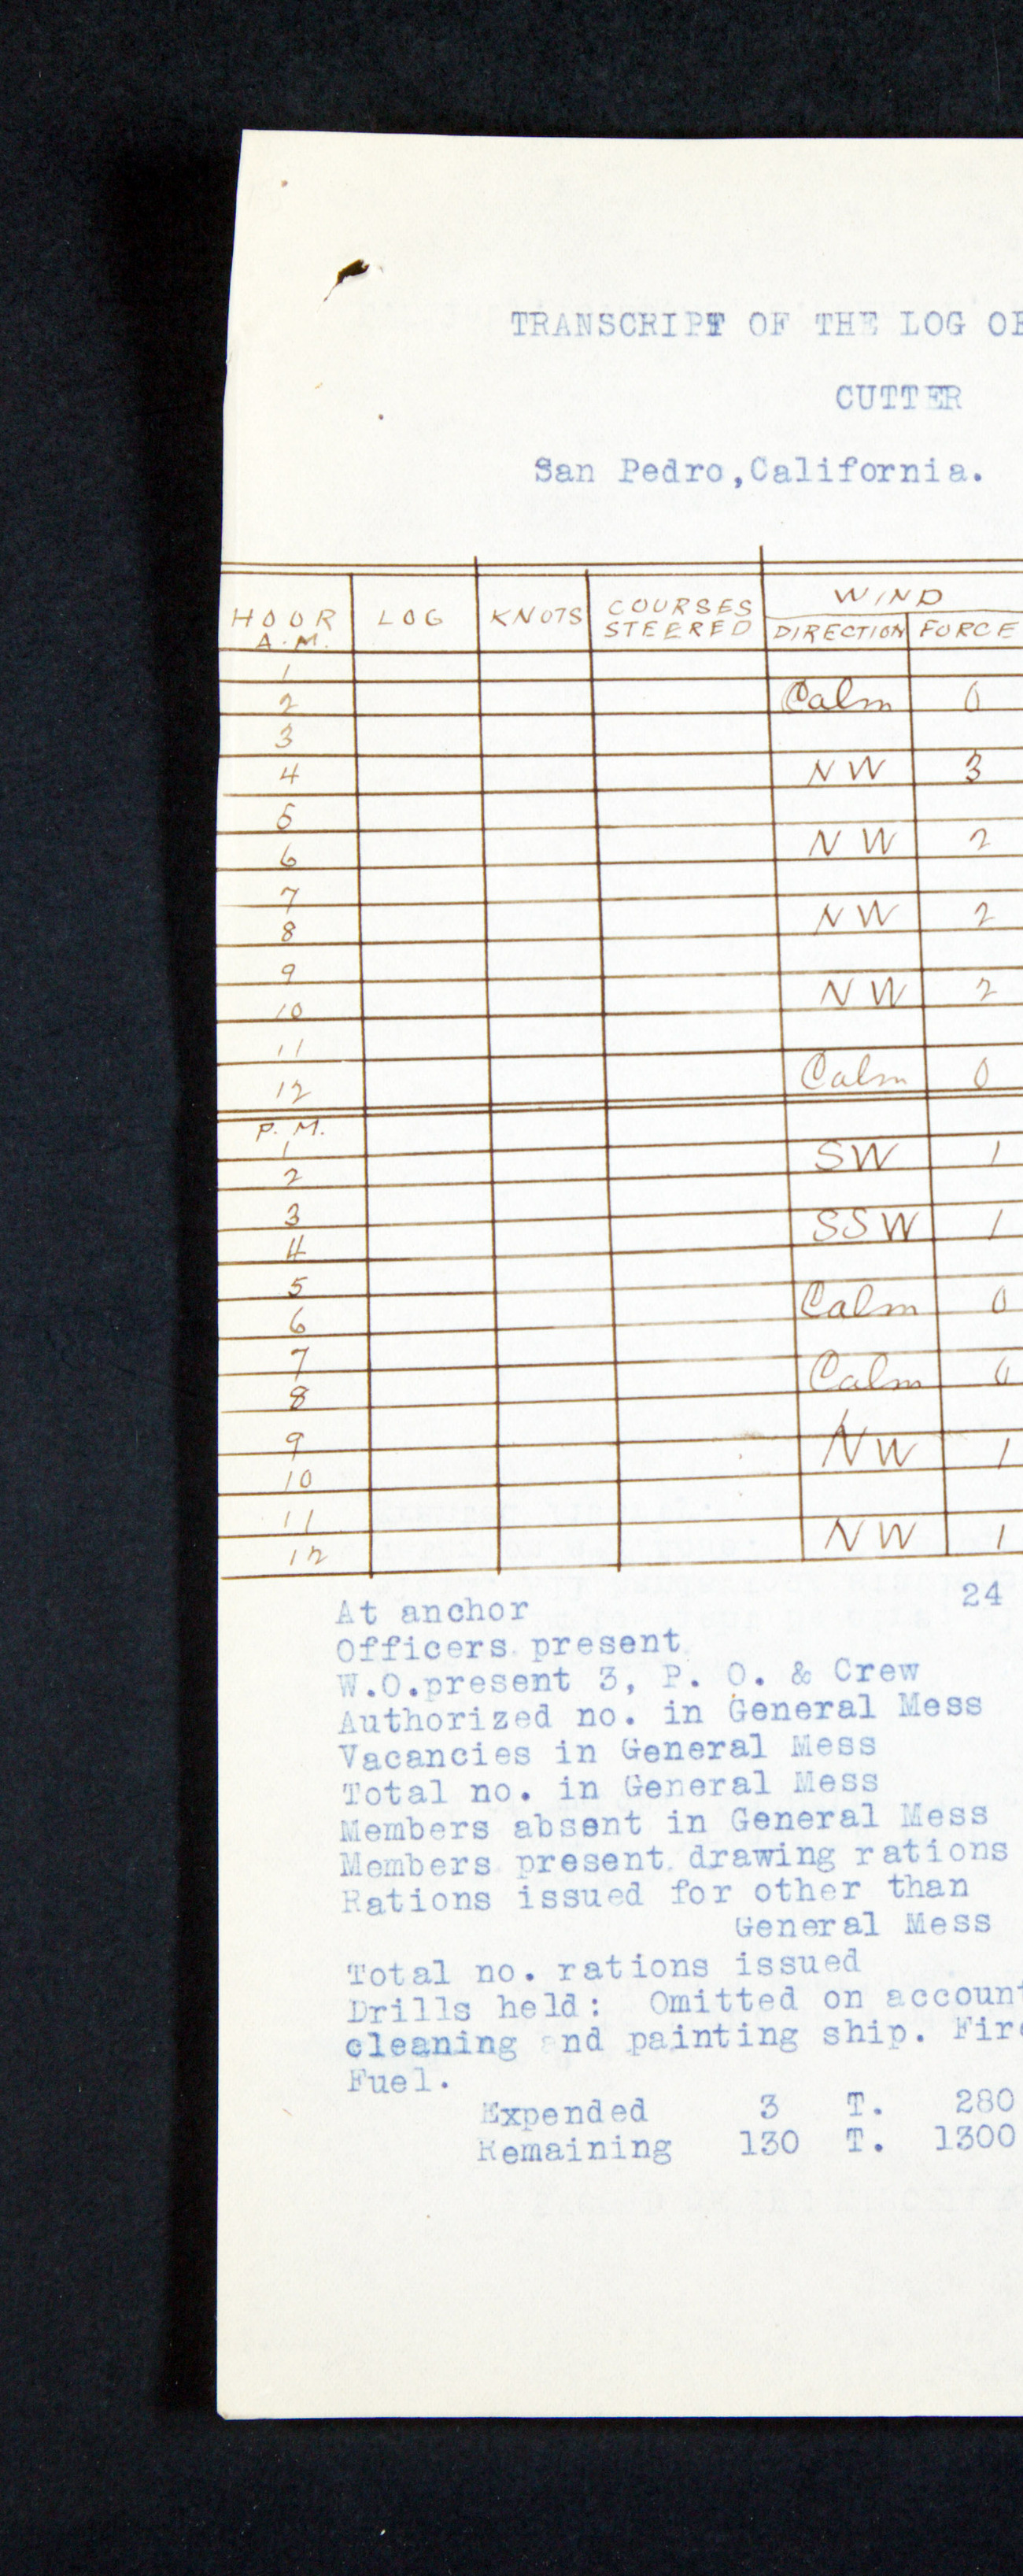 TRANSCRIPT OF THE LOG OF
CUTTER
San Pedro,California.
HOUR LOG KNOTS COURSES STEERED WIND
DIRECTION FORCE
A.M.
1
2 Calm 0
3
4 NW 3
5
6 NW 2
7
8 NW 2
9
10 NW 2
11
12 Calm 0
P.M.
1
2 SW 1
3
4 SSW 1
5
6 Calm 0
7
8 Calm 0
9
10 NW 1
11
12 NW 1
At anchor 24
Officers present
W.O.present 3, P. O. & Crew
Authorized no. in General Mess
Vacancies in General Mess
Total no. in General Mess
Members absent in General Mess
Members present drawing rations
Rations issued for other than
General Mess
Total no. rations issued
Drills held: Omitted on account
cleaning and painting ship. Fire
Fuel.
Expended 3 T. 280
Remaining 130 T. 1300